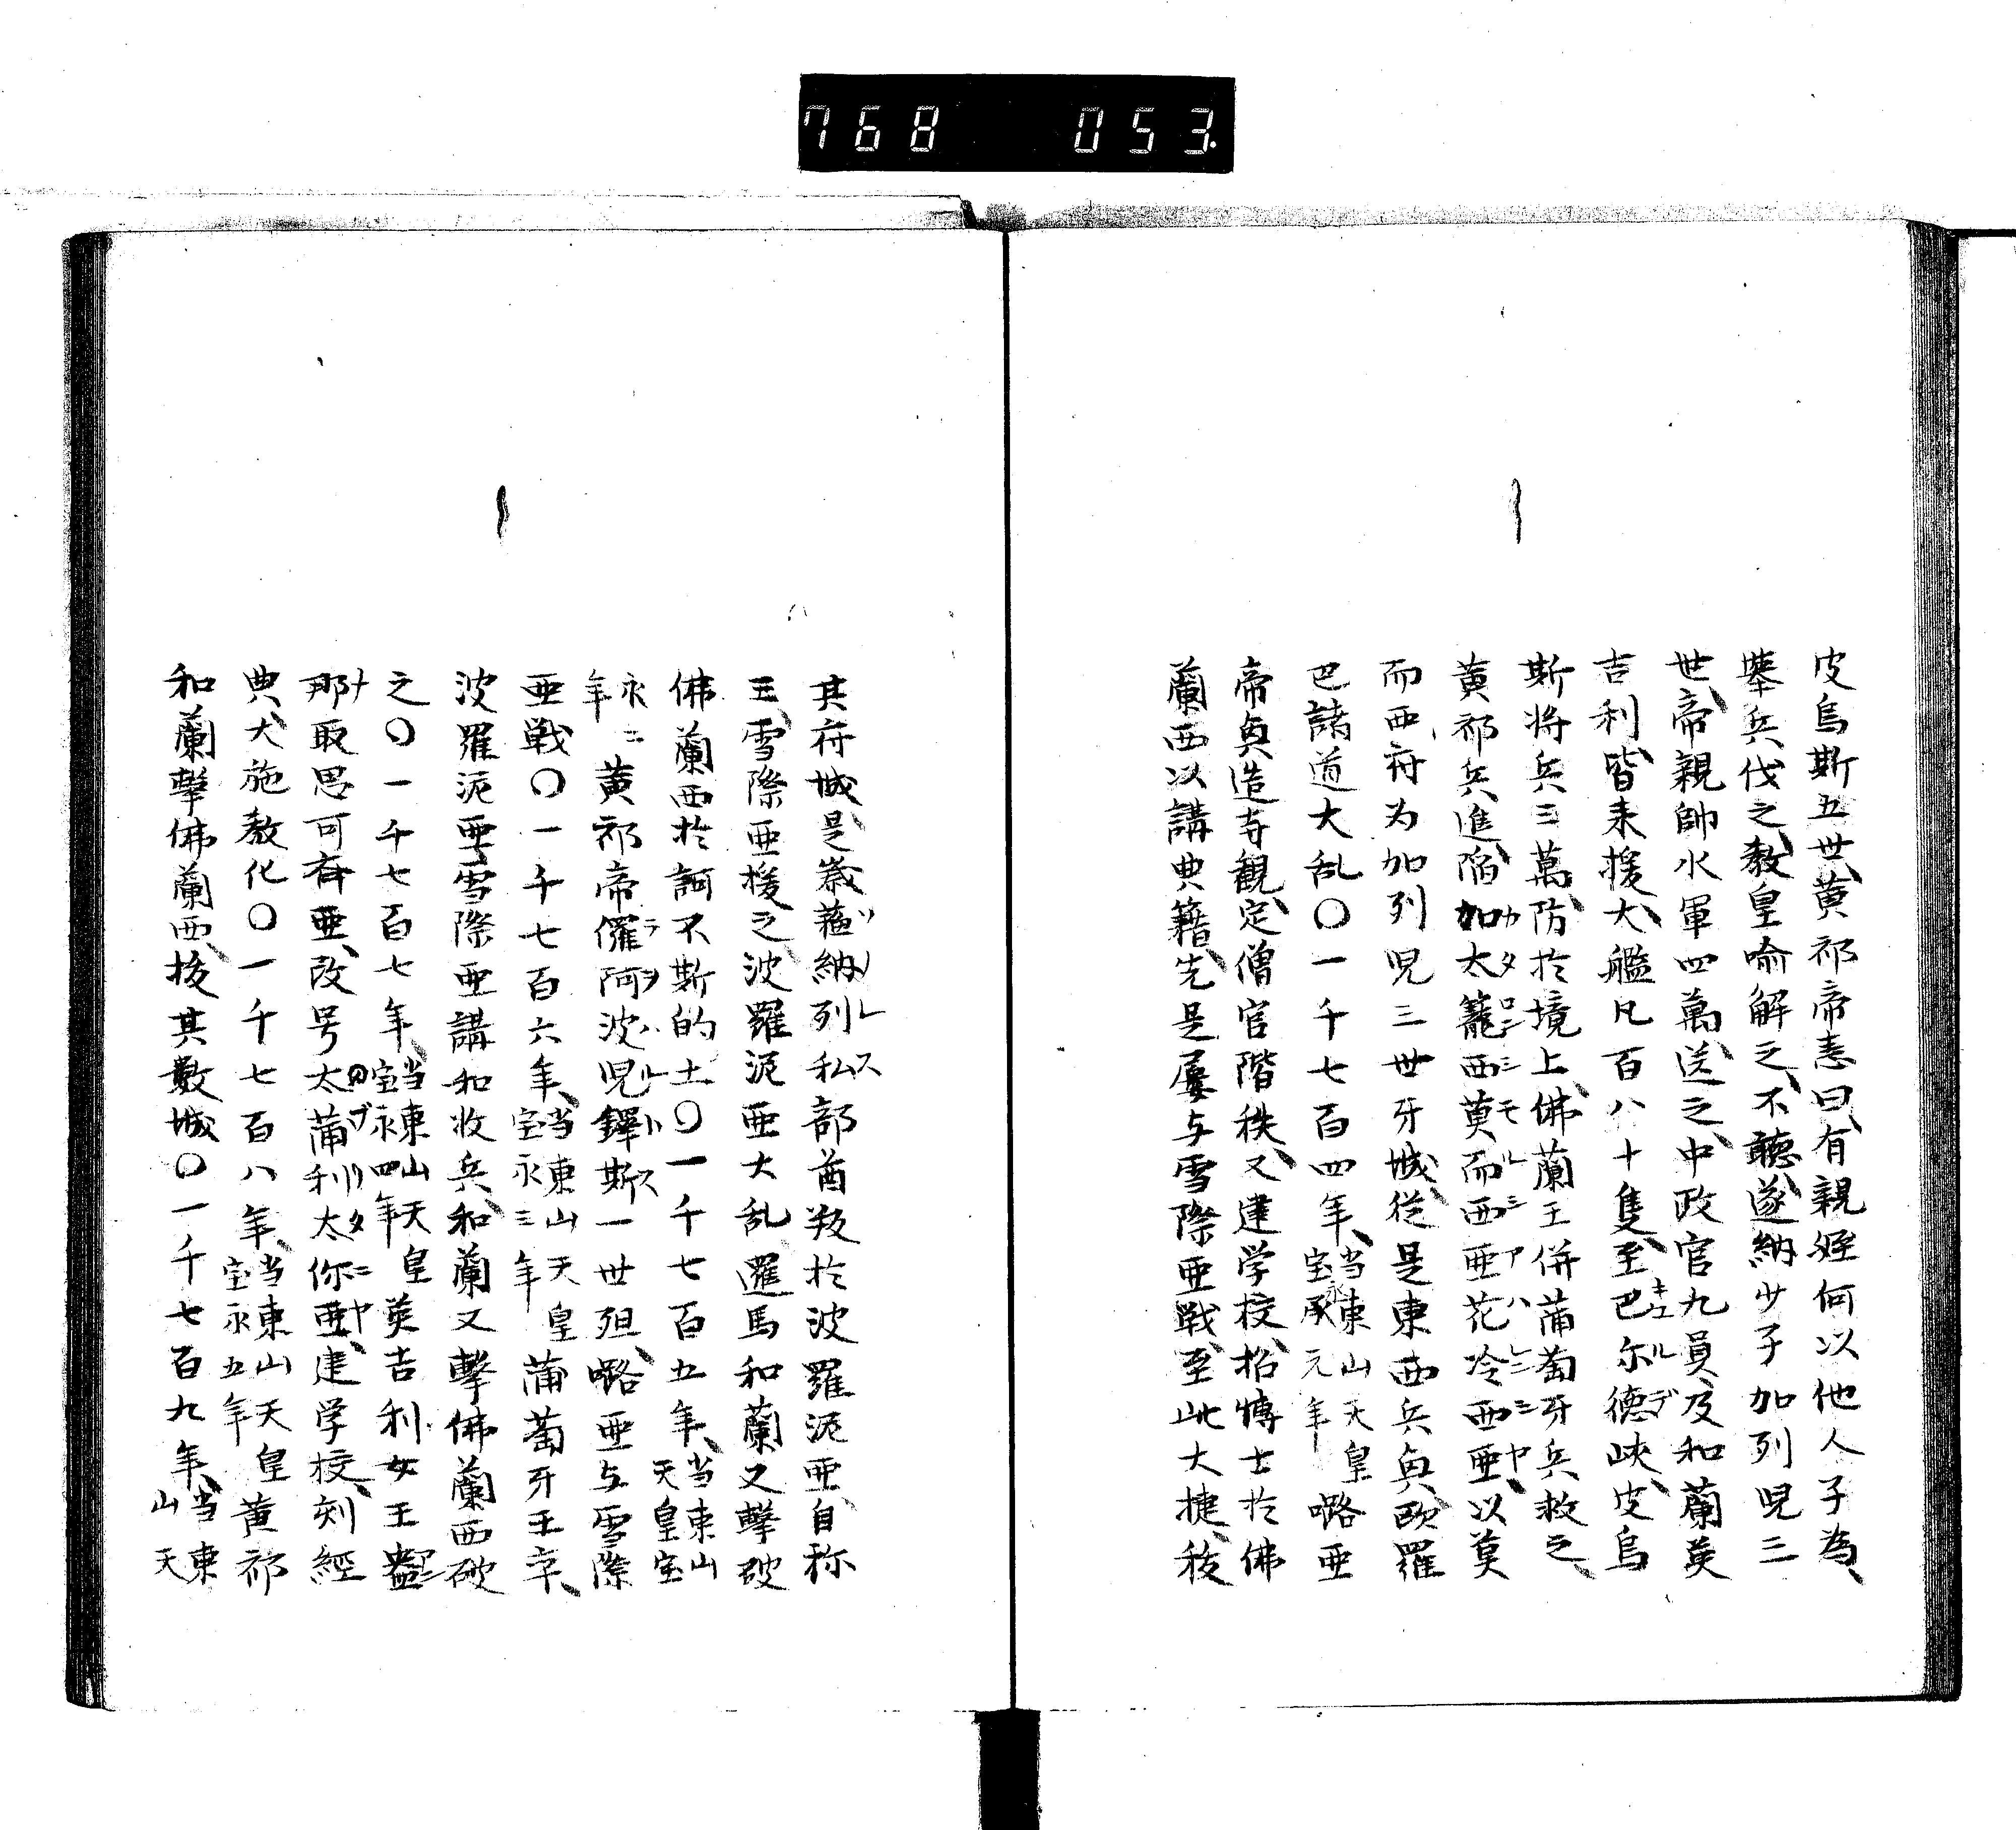 768 053.
皮烏斯五世、黄祁帝恚曰、有親姪何以他人子為、
挙兵伐之、教皇喻解之、不聴、遂納少子加列児三
世、帝親帥水軍四萬、送之、中政官九員、及和蘭英
吉利、皆来援、大艦凡百八十隻、至巴尓德峡、皮烏
斯将兵三萬、防於境上、佛蘭王併蒲萄牙兵救之、
黄祁兵進、陥加太籠西莫而西亜花冷西亜、以莫
而西府为加列児三世牙城、従是東西兵與欧羅
巴諸道大乱〇一千七百四年、当東山天皇宝永元年㗉亜
帝與造寺観、定僧官階秩、又建学校、招博士於佛
蘭西以講典籍、先是屢与雪際亜戦、至此大捷、抜
其府城、是歳蘓納列私部酋叛於波羅泥亜、自称
王、雪際亜援之、波羅泥亜大乱、邏馬和蘭又撃破
佛蘭西於訶不斯的土〇一千七百五年、当東山天皇宝
永二年黄祁帝儸阿波児鐸斯一世殂、㗉亜与雪際
亜戦〇一千七百六年、当東山天皇宝永三年蒲萄牙王卒、
波羅泥亜雪際亜講和收兵、和蘭又撃佛蘭西破
之〇一千七百七年、当東山天皇宝永四年英吉利女王
那取思可斉亜、改号太蒲利太你亜、建学校、刻經
典、大施教化〇一千七百八年、当東山天皇宝永五年黄祁
和蘭撃佛蘭西、抜其數城〇一千七百九年、当東山天